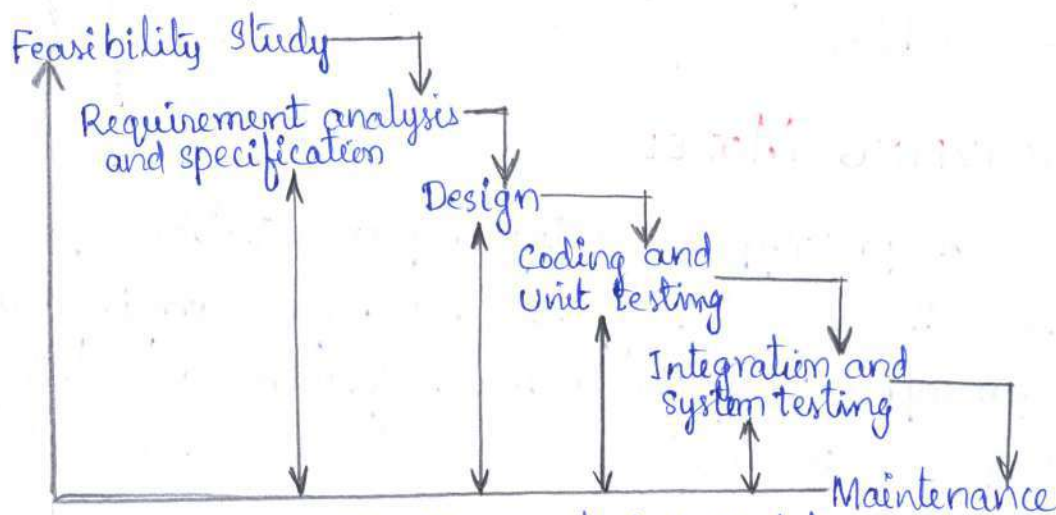 Feasibility Study
Requirement analysis
and specification
Design
Coding and
Unit testing
Integration and
System testing
Maintenance